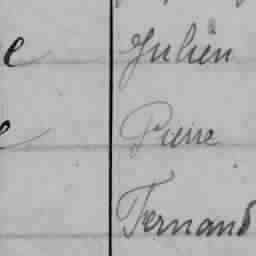 e Julien
e Pierre
Fernand